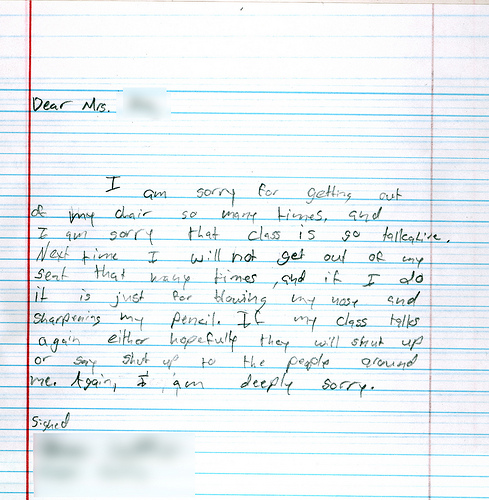 Dear Mrs.
I am sorry for getting out
of my chair so many times, and
I am sorry that class is so talkative.
Next time I will not get out of my
seat that many times, and if I do
it is just for blowing my nose and
sharpening my pencil. If my class talks
again either hopefully they will shut up
or say shut up to the people around
me. Again, I am deeply sorry.
Signed